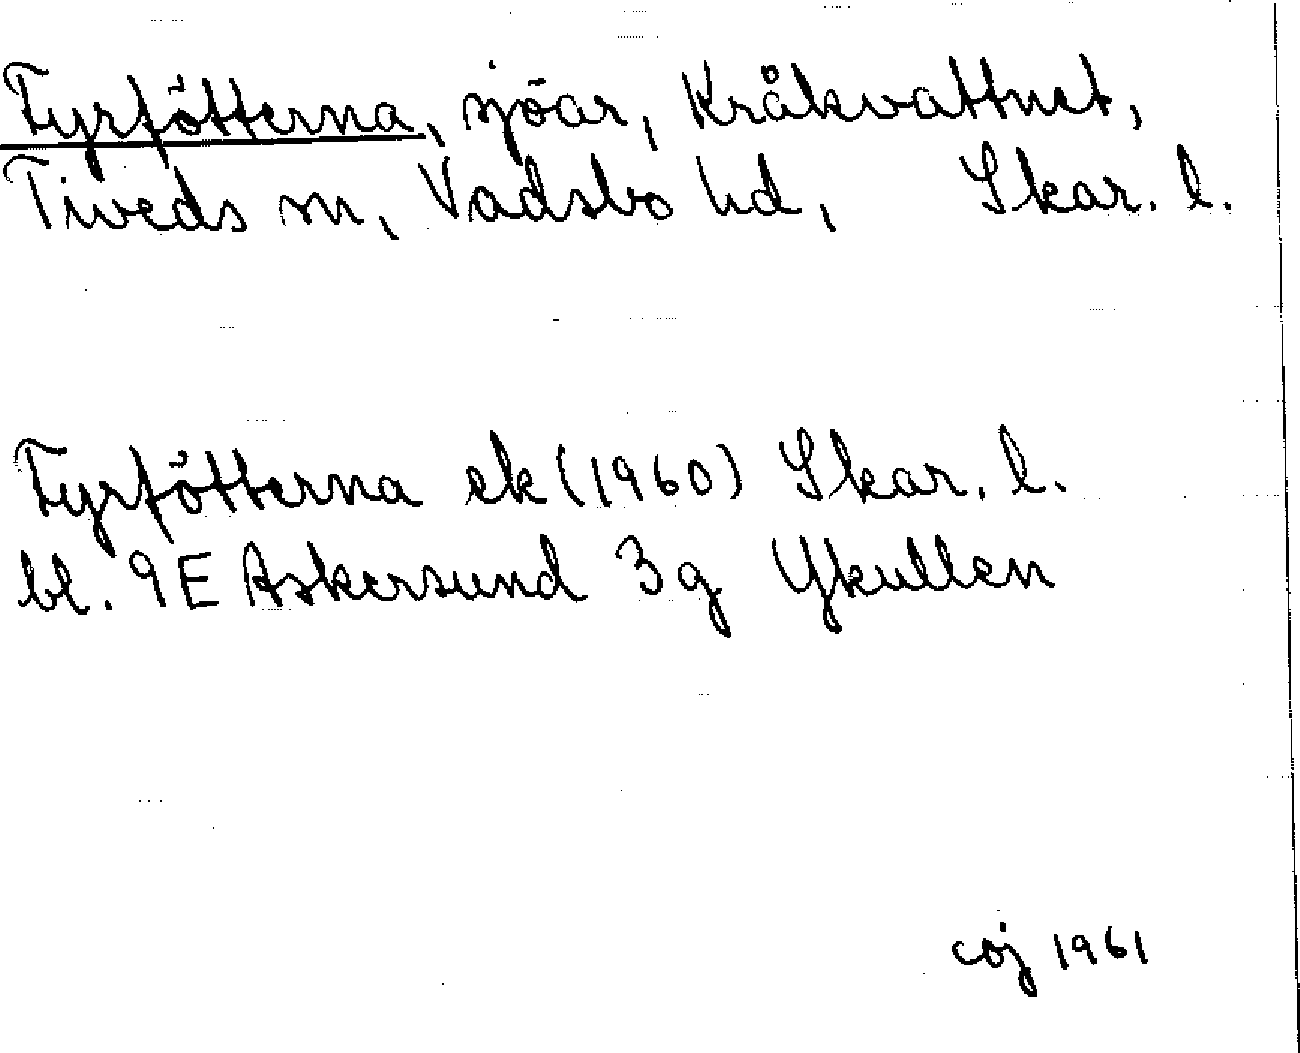 Fyrfötterna, sjöar, Kråkvattnet,
Tiveds sn, Vadsbo hd, Skar. l.
Fyrfötterna ek (1960) Skar. l.
bl. 9E Askersund 3g Ykullen
coj 1961